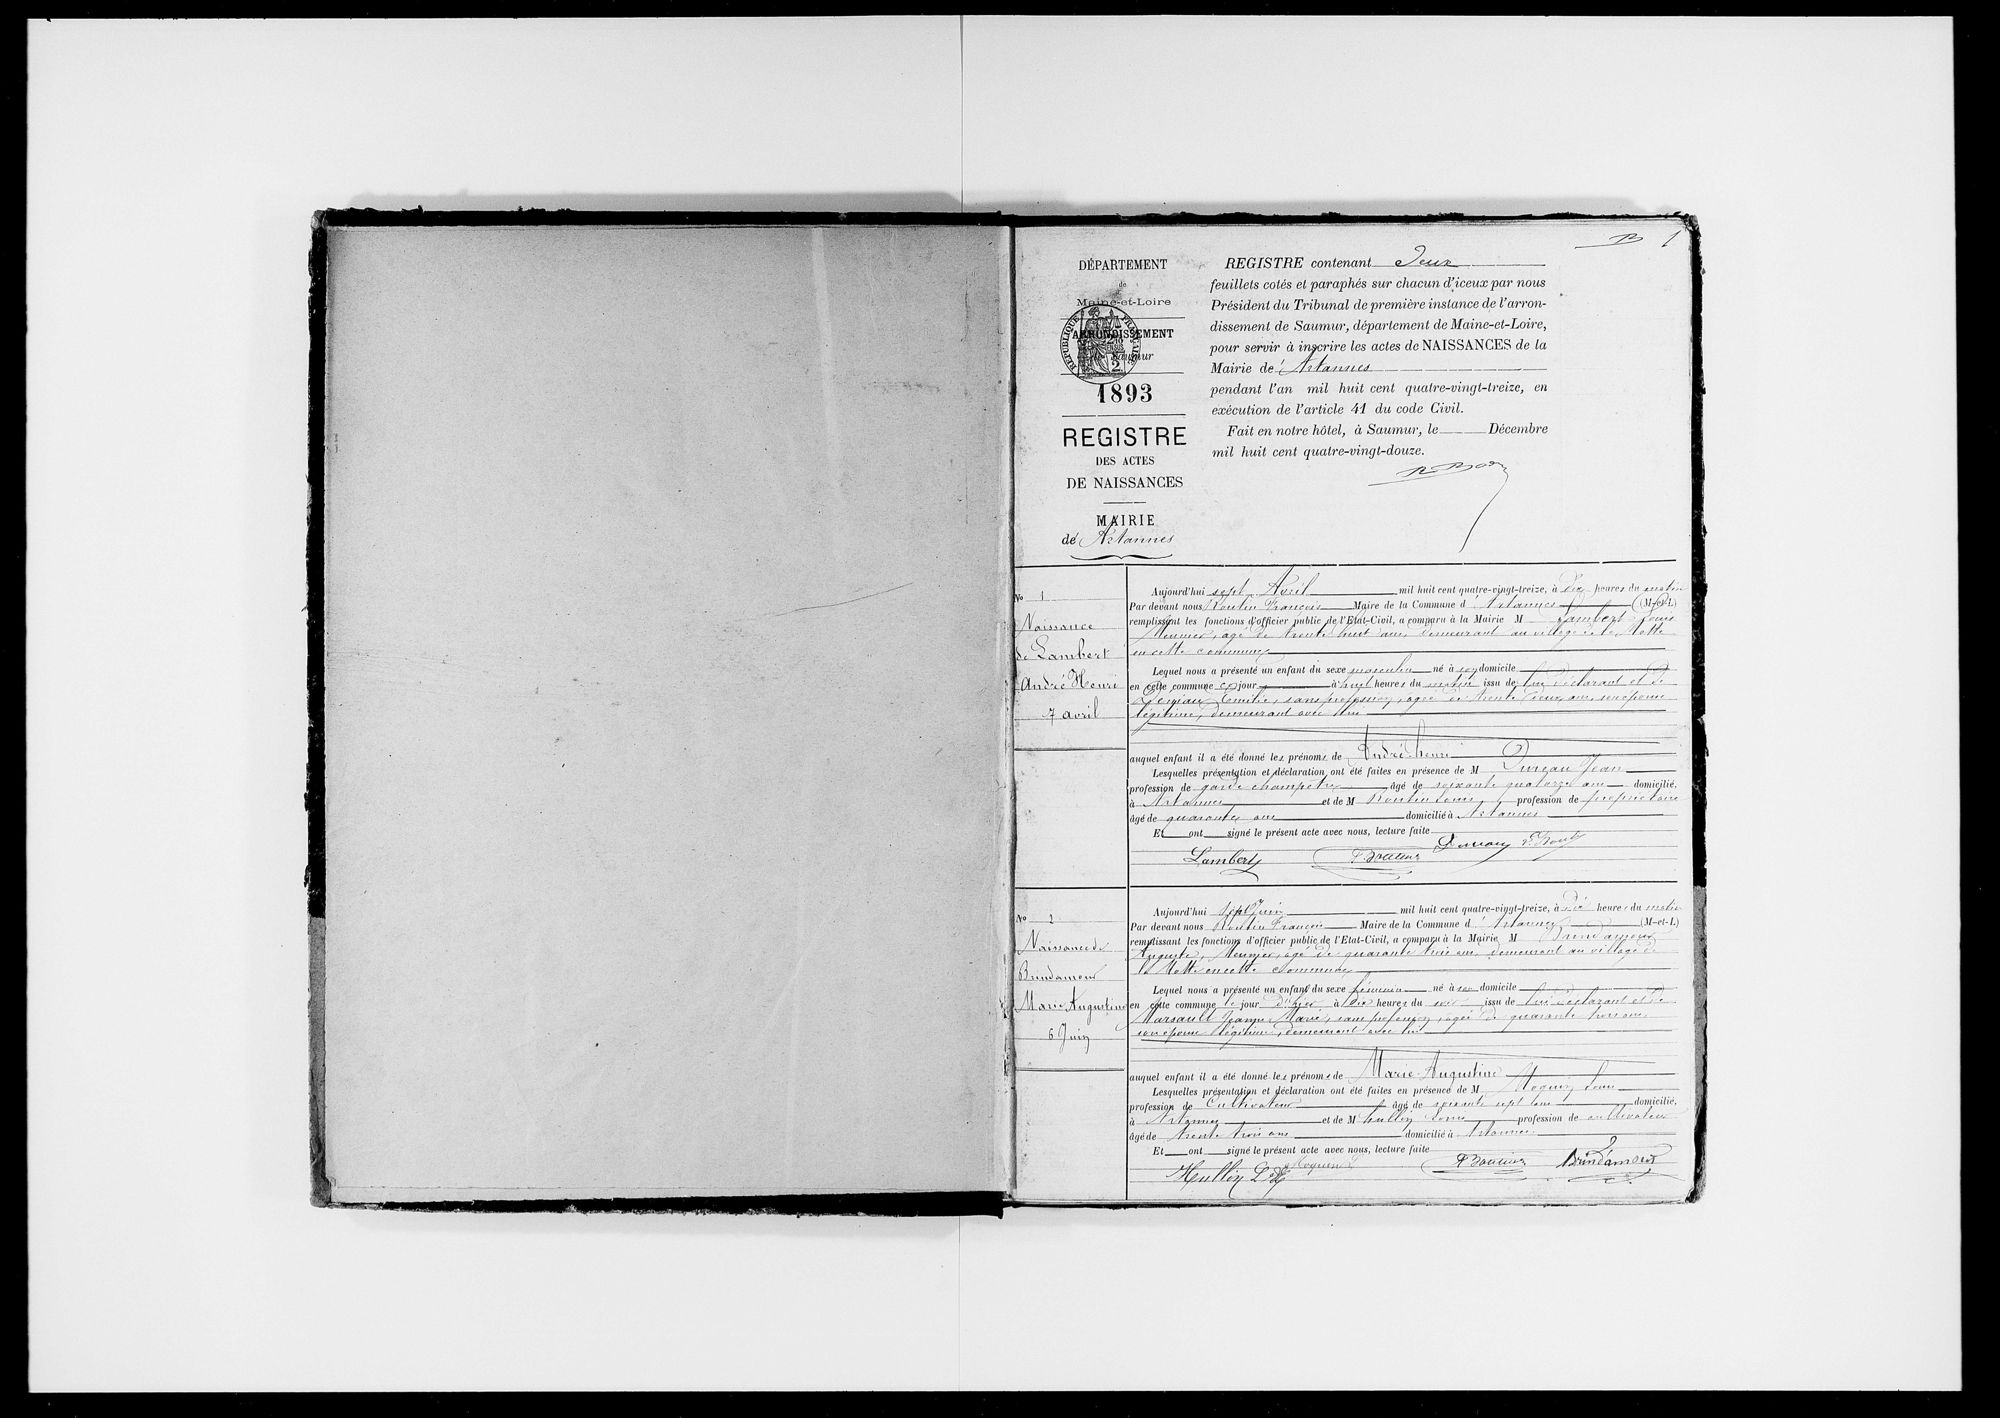 B 1
DÉPARTEMENT
de
Maine-et-Loire
ARRONDISSEMENT
de Saumur
RÉPUBLIQUE FRANÇAISE
1893
REGISTRE
DES ACTES
DE NAISSANCES
MAIRIE
de Artannes
REGISTRE contenant Deux
feuillets cotés et paraphés sur chacun d'iceux par nous
Président du Tribunal de première instance de l'arron-
dissement de Saumur, département de Maine-et-Loire,
pour servir à inscrire les actes de NAISSANCES de la
Mairie de Artannes
pendant l'an mil huit cent quatre-vingt-treize, en
exécution de l'article 41 du code Civil.
Fait en notre hôtel, à Saumur, le Décembre
mil huit cent quatre-vingt-douze.
No 1
Naissance
de Lambert
André Henri
7 avril
Aujourd'hui sept Avril mil huit cent quatre-vingt-treize, à dix heures du matin
Par devant nous Boutin François Maire de la Commune d'Artannes (M-et-L)
remplissant les fonctions d'officier public de l'Etat-Civil, a comparu à la Mairie M Lambert Louis
Meunier, agé de trente huit ans, demeurant au village de la Motte
en cette commune
Lequel nous a présenté un enfant du sexe masculin né à son domicile
en cette commune ce jour à huit heures du matin issu de lui déclarant et de
Emilie, sans profession, agée de trente deux ans, son épouse
légitime, demeurant avec lui
auquel enfant il a été donné les prénoms de André henri
Lesquelles présentation et déclaration ont été faites en présence de M Jean
profession de garde champêtre âgé de soixante quatorze ans domicilié,
à Artannes et de M Boutin Louis profession de propriétaire
âgé de quarante ans domicilié à Artannes
Et ont signé le présent acte avec nous, lecture faite
Lambert
No 2
Naissance de
Brindamour
Marie Augustine
6 Juin
Aujourd'hui sept Juin mil huit cent quatre-vingt-treize, à dix heures du matin
Par devant nous Boutin François Maire de la Commune d'Artannes (M-et-L)
remplissant les fonctions d'officier public de l'Etat-Civil, a comparu à la Mairie M Brindamour
Auguste, Meunier, agé de quarante trois ans, demeurant au village de
la Motte en cette commune
Lequel nous a présenté un enfant du sexe féminin né à son domicile
en cette commune le jour d'hier à dix heures du soir issu de lui déclarant et de
Marsault Jeanne Marie, sans profession, agée de quarante trois ans,
son épouse légitime, demeurant avec lui
auquel enfant il a été donné les prénoms de Marie-Augustine
Lesquelles présentation et déclaration ont été faites en présence de M Moquin Louis
profession de Cultivateur âgé de soixante sept ans domicilié,
à Artannes et de M hullin Louis profession de cultivateur
âgé de trente trois ans domicilié à Artannes
Et ont signé le présent acte avec nous, lecture faite
Hullin L Moquin Brindamour